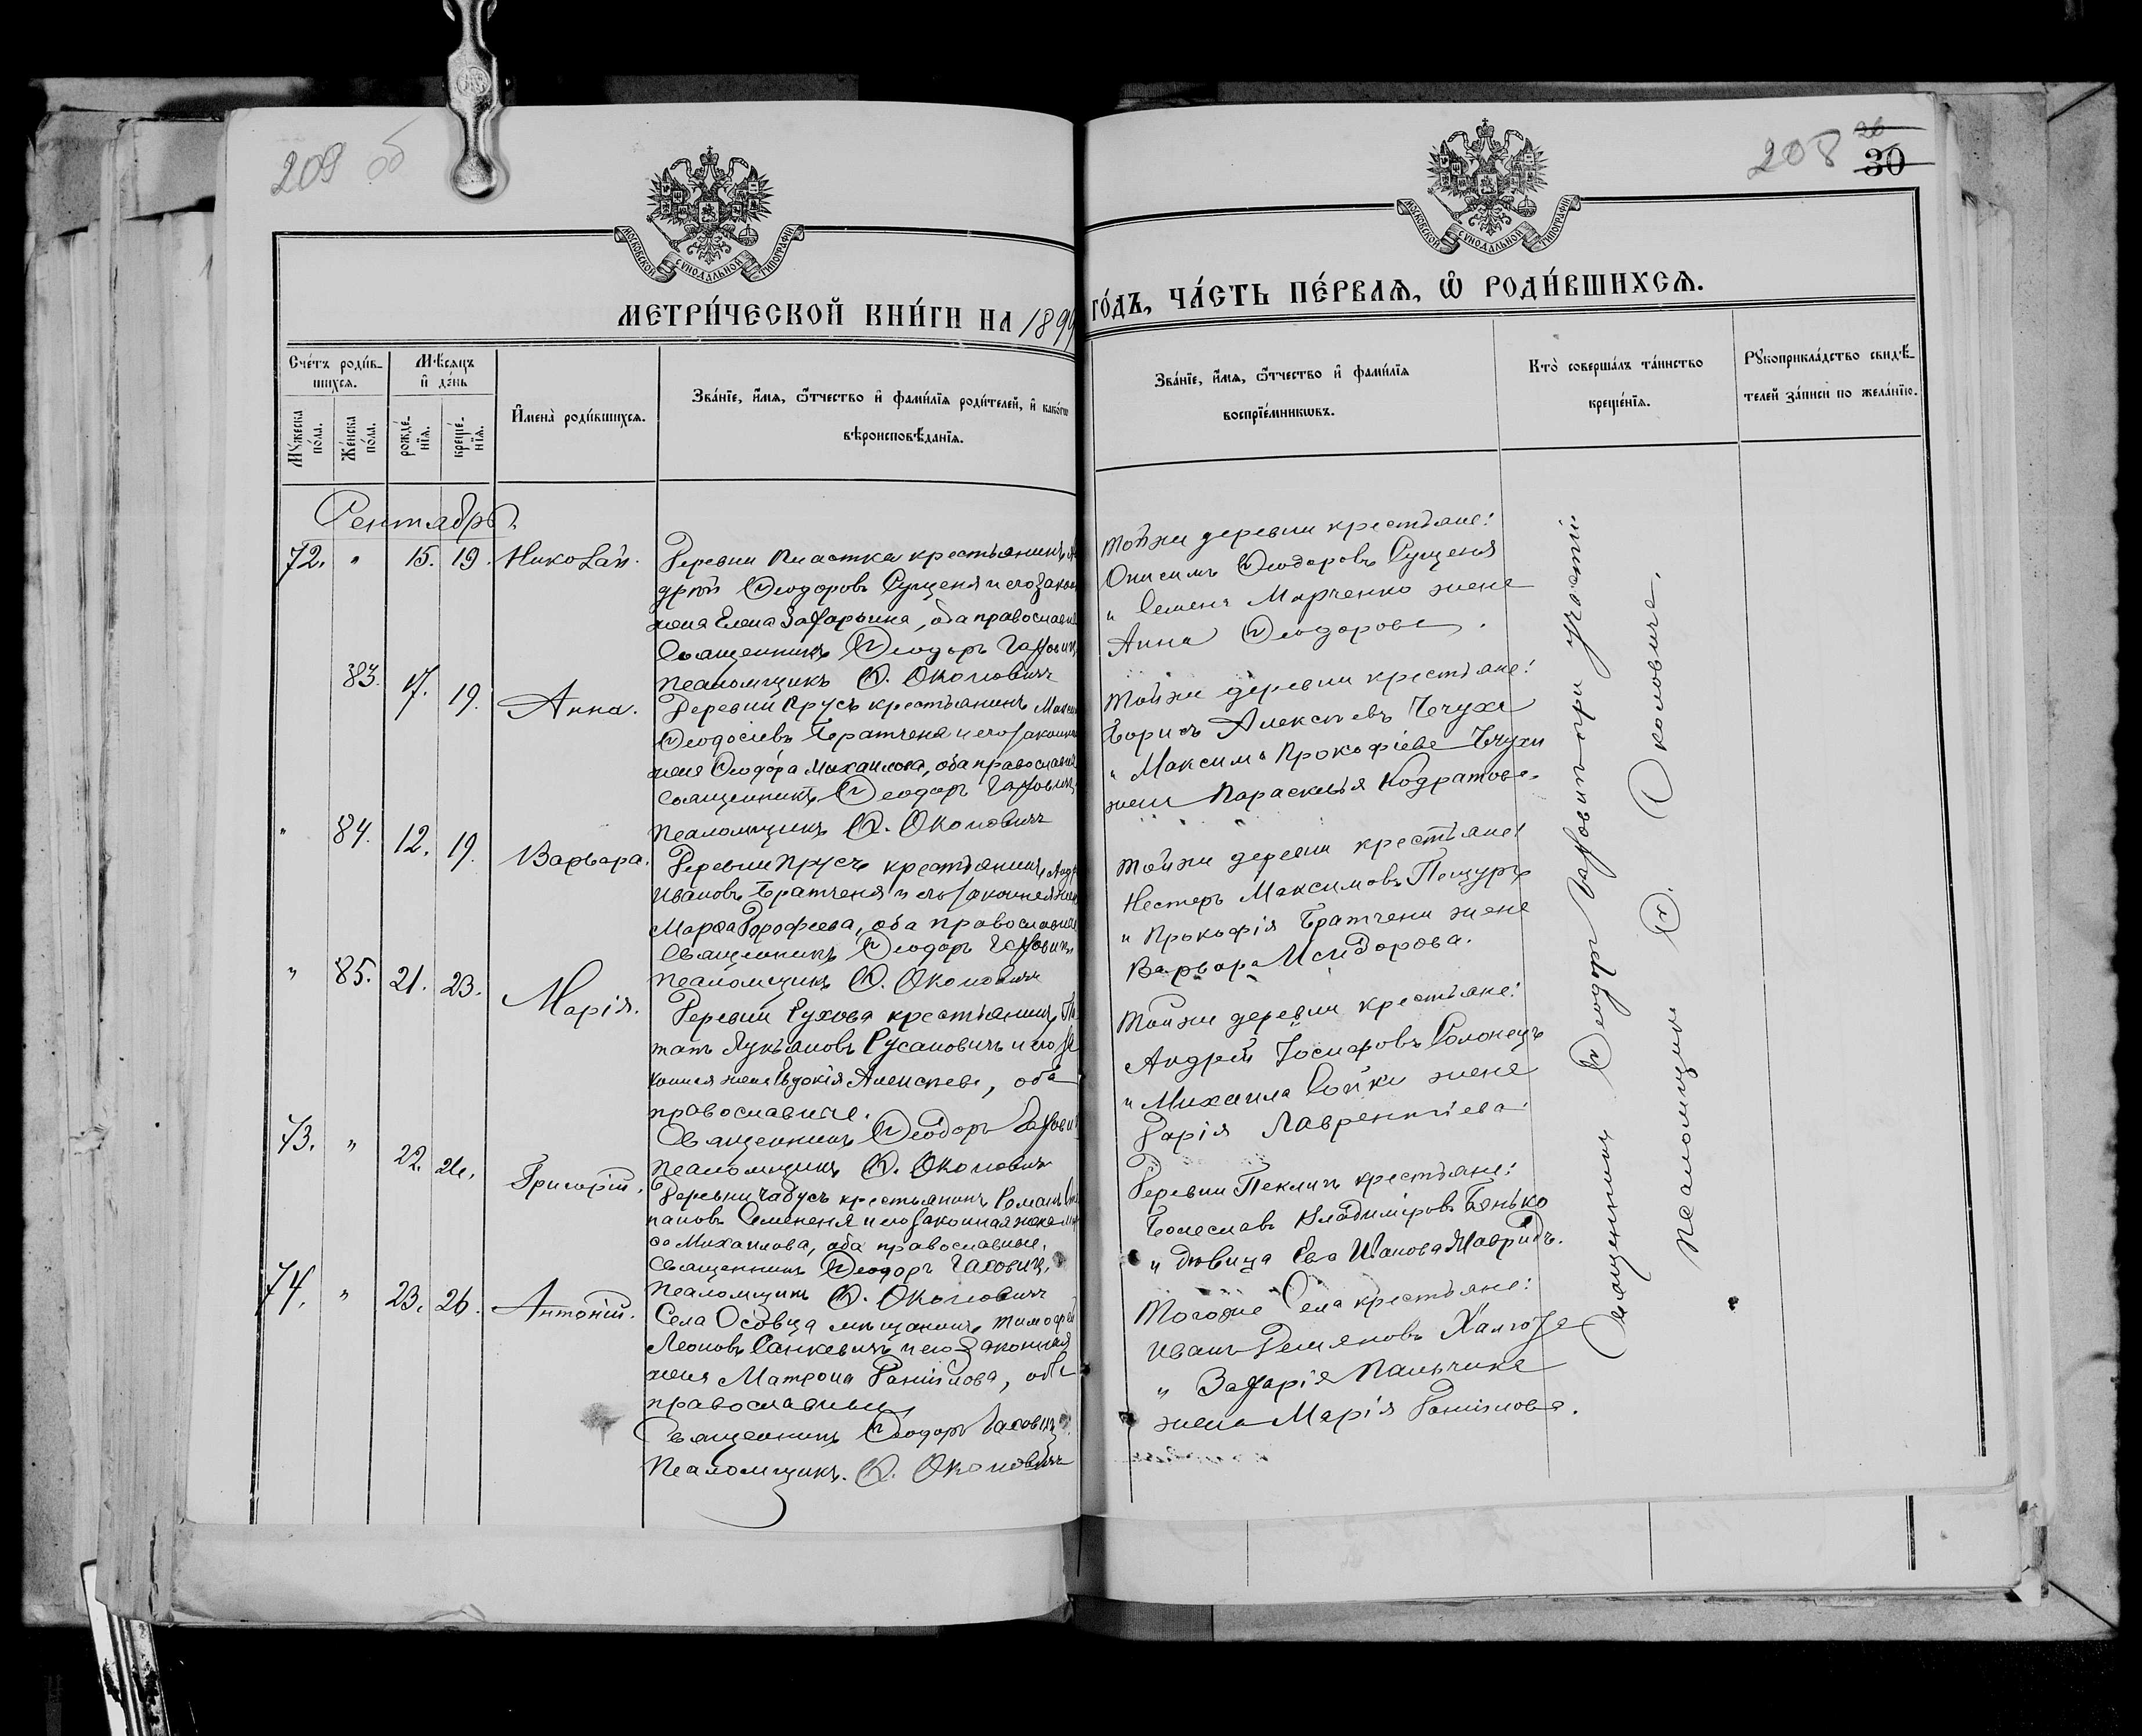 209 об
208
26
30
МОСКОВСКОЙ СѴНОДАЛЬНОЙ ТИПОГРАФІИ
МОСКОВСКОЙ СѴНОДАЛЬНОЙ ТИПОГРАФІИ
МЕТРИ́ЧЕСКОЙ КНИ́ГИ НА 1899
ГО́ДЪ, ЧА́СТЬ ПЕ́РВАѦ, Ѡ РОДИ́ВШИХСѦ.
Сче́тъ роди́в-
шихсѧ.
Мѣ́сяцъ
и҆ де́нь
Мꙋ́жеска
по́ла.
Же́нска
по́ла.
рожде́-
нїѧ.
креще́-
нїѧ.
И҆мена̀ роди́вшихсѧ.
Зва́нїе, и҆́мѧ, ѻ҆́тчество и҆ фамѝлїѧ роди́телей, и҆ како́гѡ
вѣроисповѣ́данїѧ.
Зва́нїе, и҆́мѧ, ѻ҆́тчество и҆ фамѝлїѧ
воспрїе́мникѡвъ.
Кто̀ соверша́лъ та́инство
креще́нїѧ.
Рꙋкоприкла́дство свидѣ́-
телей за́писи по жела́нїю.
Сентябрь.
72. " 15. 19. Николай.
Деревни Пластка крестьянинъ
Ѳеодоровъ Сущеня и его закон
жена Елена Захарьина, оба православ
Священникъ Ѳеодоръ
Псаломщикъ Ѳ. Околовичъ
Тойже деревни крестьяне:
Онисимъ Ѳеодоровъ Сущеня
" Семена Марченко жена
Анна Ѳеодорова.
83. 17. 19. Анна.
Деревни Прусъ крестьянинъ Макси
Ѳеодосіевъ Братченя и его законн
жена Ѳеодора Михаилова, оба православн
Священникъ Ѳеодоръ
Псаломщикъ Ѳ. Околовичъ
Тойже деревни крестьяне:
Борисъ Алексѣевъ Чечуха
" Максима Прокофіева Чечухи
жена Параскевія Кодратова.
" 84. 12. 19. Варвара.
Деревни Прусъ крестьянинъ Анд
Ивановъ Братченя и его законная жен
Марѳа Дорофеева, оба православн
Священникъ Ѳеодоръ
Псаломщикъ Ѳ. Околовичъ
Тойже деревни крестьяне:
Нестеръ Максимовъ Пещуръ
" Прокофія Братчени жена
Варвара Исидорова.
" 85. 21. 23. Марія.
Деревни Сухова крестьянинъ По
тапъ Лукьяновъ Русановичъ и его за
конная жена Евдокія Алексѣева, оба
православные.
Священникъ Ѳеодоръ
Псаломщикъ Ѳ. Околовичъ
Тойже деревни крестьяне:
Андрей Іосифовъ Солонецъ
" Михаила Сойки жена
Дарія Лаврентіева
73. " 22. 26. Григорій.
Деревни Чабусъ крестьянинъ Романъ
пановъ Семененя и его законная жена
Михаилова, оба православные.
Священникъ Ѳеодоръ Гахович
Псаломщикъ Ѳ. Околовичъ
Деревни Пекличъ крестьяне:
Болеславъ Владиміровъ Бенько
" дѣвица Ева Иванова
74. " 23. 26. Антоній.
Села Осовца мѣщанинъ Тимофей
Леоновъ Санкевичъ и его законная
жена Матрона Даніилова, оба
православные
Священникъ Ѳеодоръ Гахович
Псаломщикъ. Ѳ. Околовичъ
Тогоже Села крестьяне:
Иванъ Демяновъ
" Захарія Пальчика
жена Марія Даніилова.
Священникъ Ѳеодоръ Гаховичъ при участіи
Псаломщика Ѳ. Околовича.